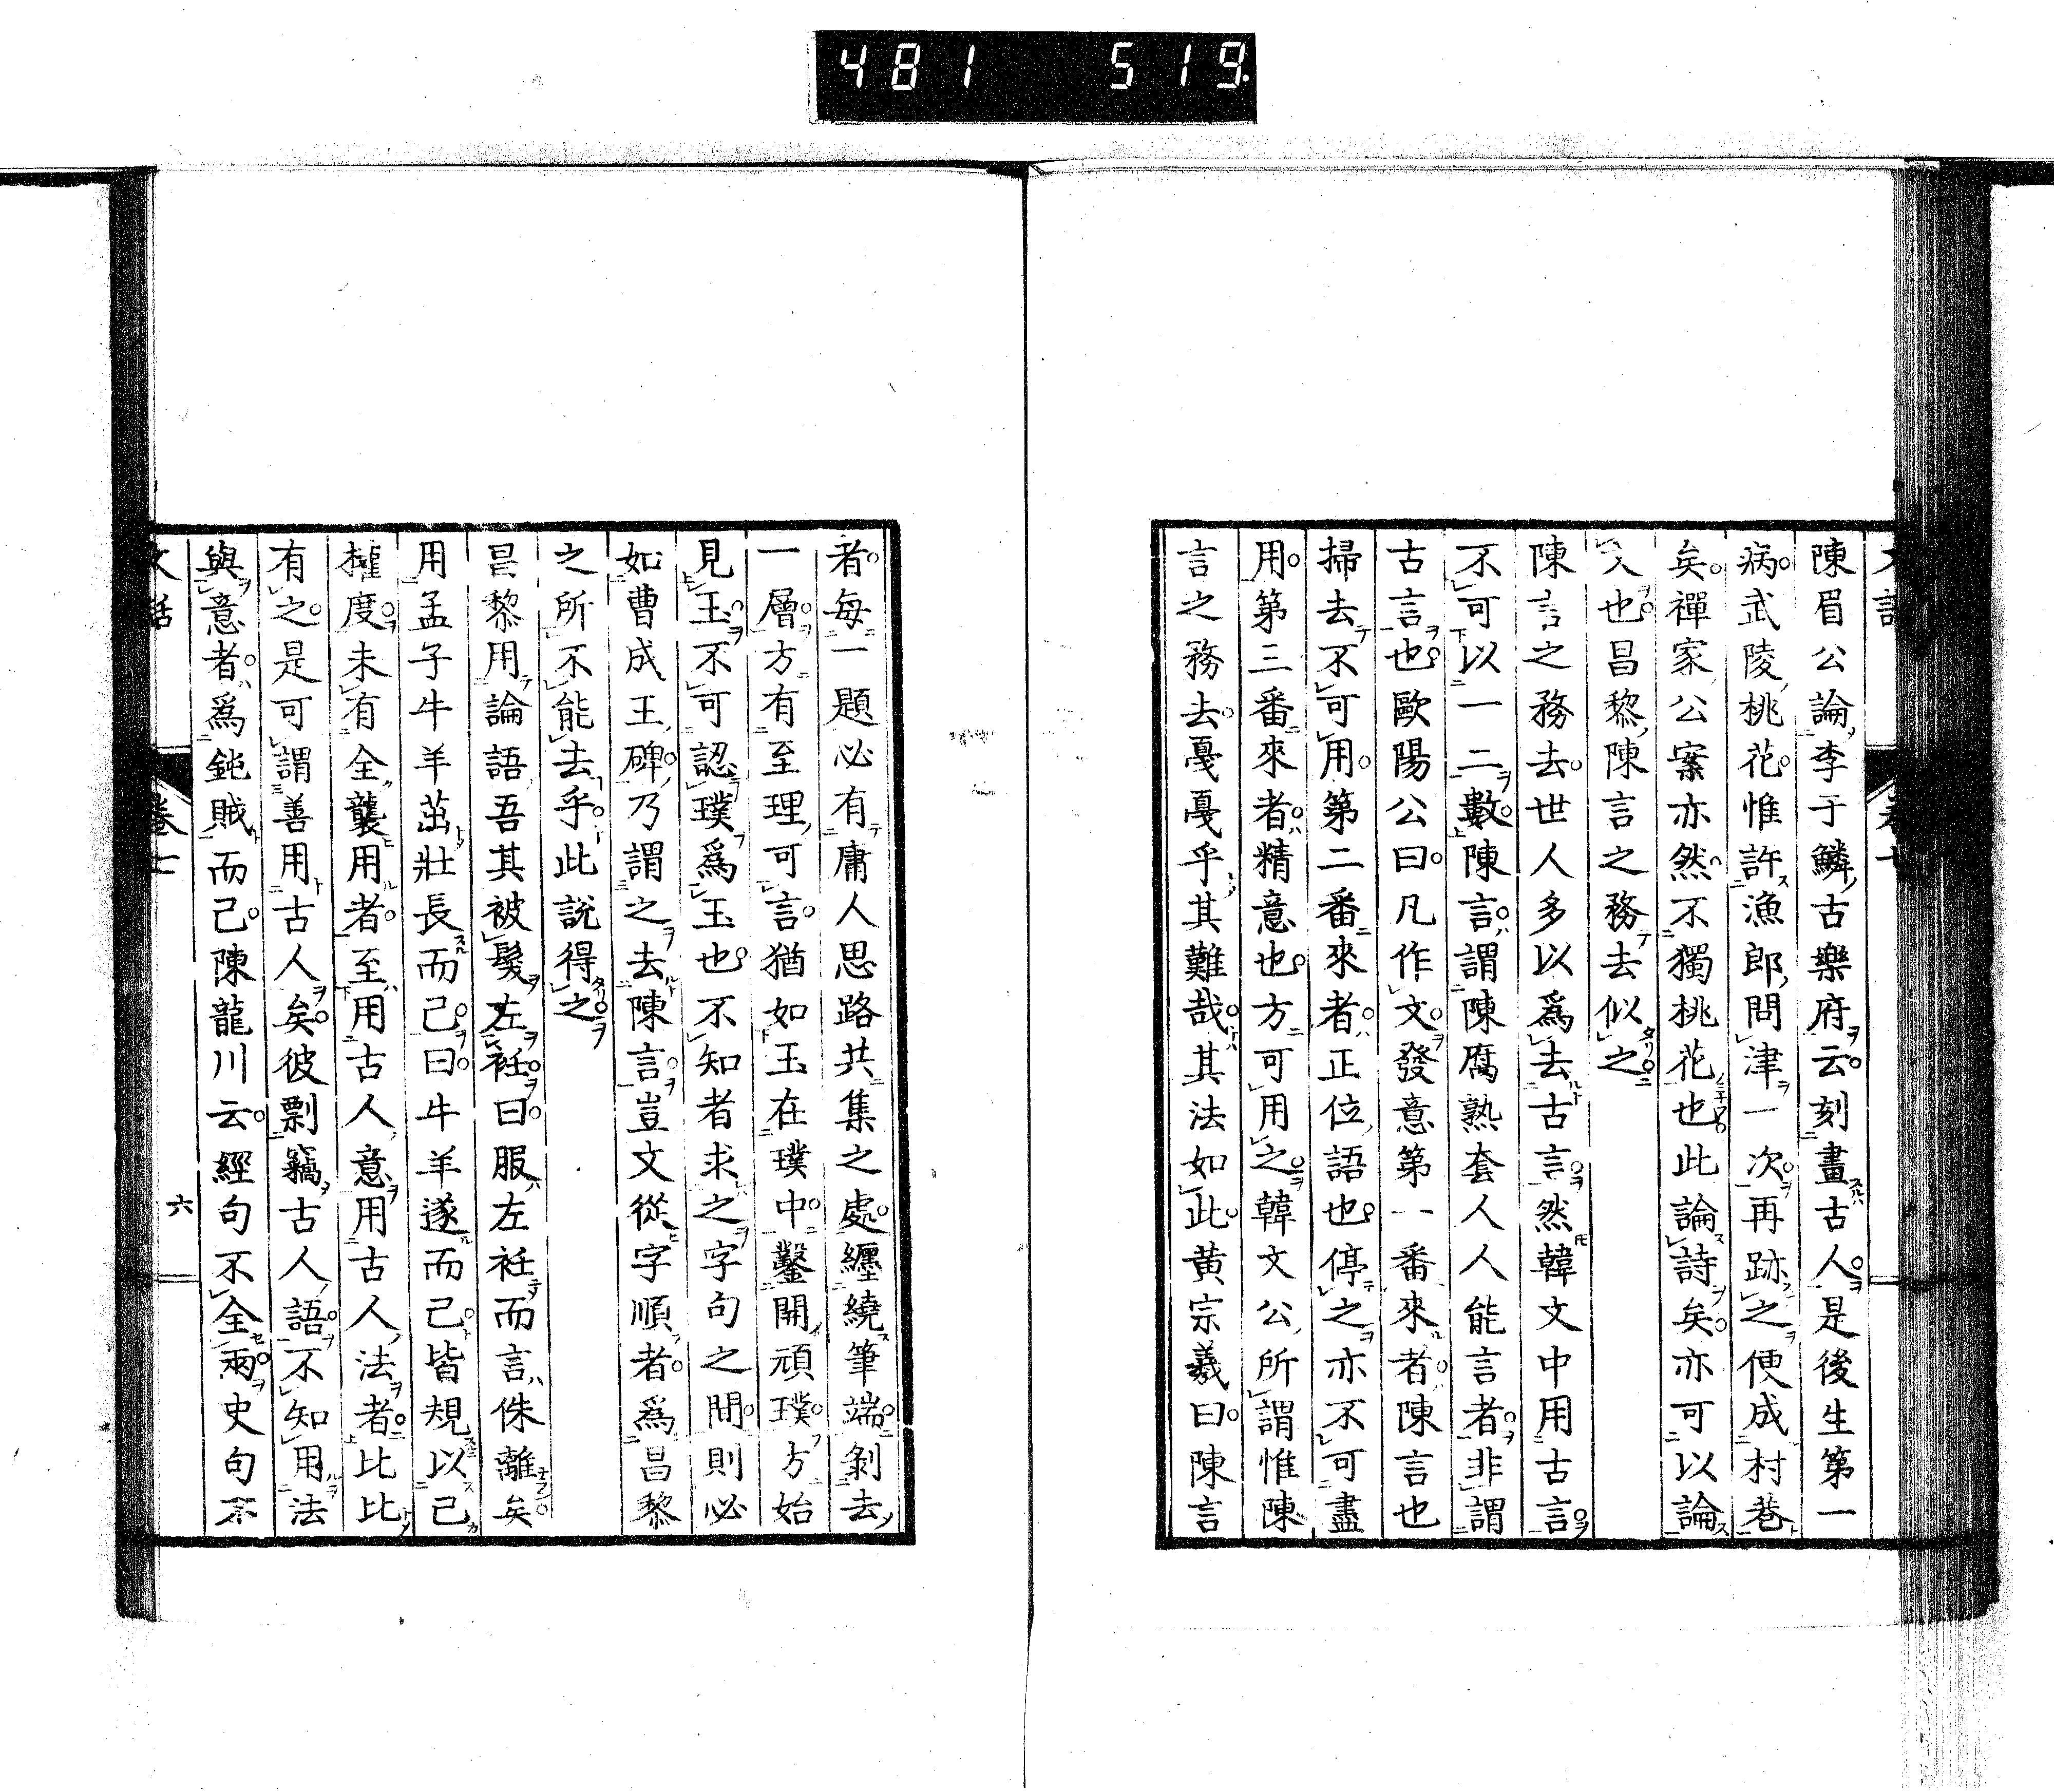 481 519
陳眉公論李于鱗古樂府云刻畫古人是後生第一
病武陵桃花惟許漁郎問津一次再跡之便成村巷
矣禪家公案亦然不獨桃花也此論詩矣亦可以論
文也昌黎陳言之務去似之
陳言之務去世人多以爲去古言然韓文中用古言
不可以一二數陳言謂陳腐熟套人人能言者非謂
古言也歐陽公曰凡作文發意第一番來者陳言也
掃去不可用第二番來者正位語也停之亦不可盡
用第三番來者精意也方可用之韓文公所謂惟陳
言之務去戛戛乎其難哉其法如此黄宗羲曰陳言
者每一題必有庸人思路共集之處纒繞筆端剝去
一層方有至理可言猶如玉在璞中鑿開頑璞方始
見玉不可認璞爲玉也不知者求之字句之間則必
如曹成王碑乃謂之去陳言豈文從字順者爲昌黎
之所不能去乎此說得之
昌黎用論語吾其被髮左衽曰服左衽而言侏離矣
用孟子牛羊茁壯長而已曰牛羊遂而已皆規以己
權度未有全襲用者至用古人意用古人法者比比
有之是可謂善用古人矣彼剽竊古人語不知用法
與意者爲鈍賊而已陳龍川云經句不全兩史句不
文話
卷七
六